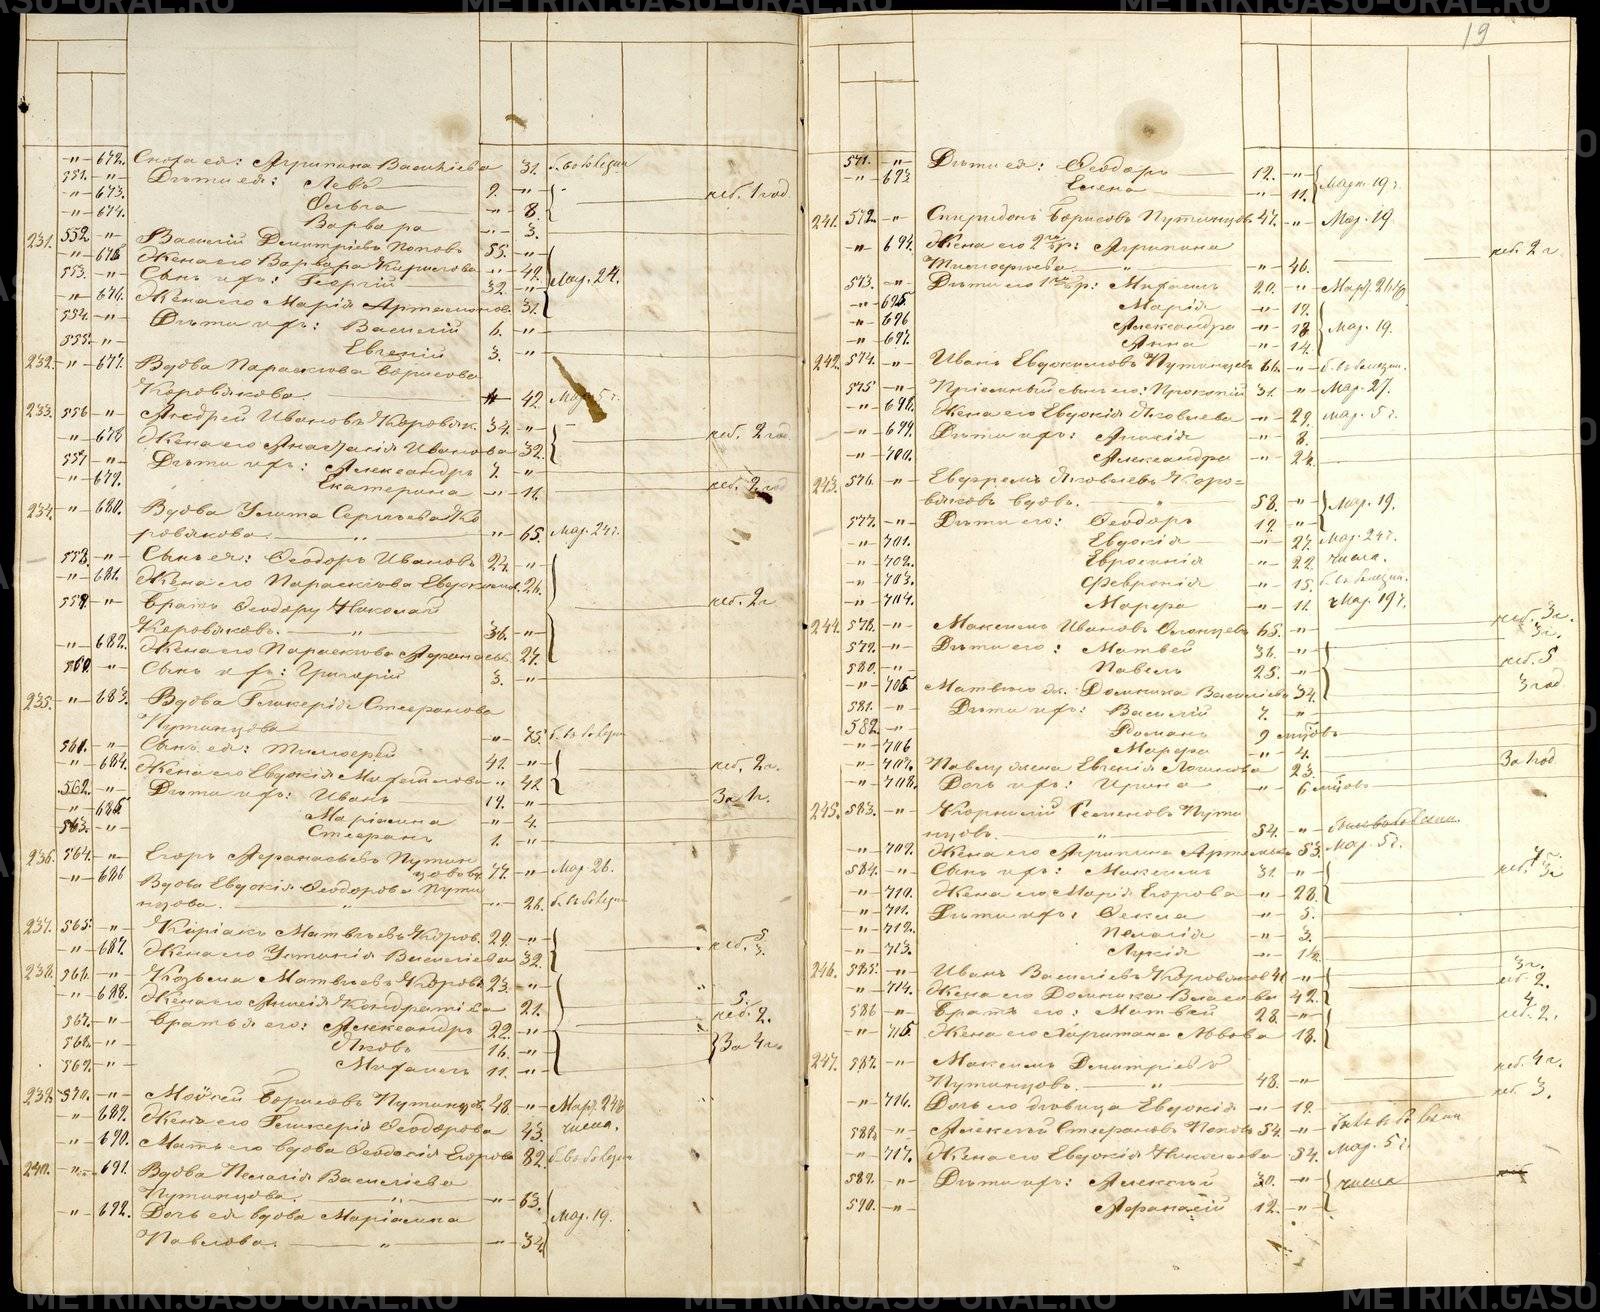 „ 672. Сноха ея: Агрипина Васильева 31. б. въ болезни
551. „ Дѣти ея: Левъ 9. „
„ 673. Ольга „ 8. неб. 1 год
„ 674. Варвара „ 3.
231. 552. „ Василій Дмитріевъ Поповъ 55. „
„ 675 Жена его Варвара Кирилова „ 42.
553. „ Сынъ ихъ: Георгій 32. „ Мар. 24.
„ 676. Жена его Марія Артамонова 31.
554. „ Дѣти ихъ: Василій 6. „
555. „ Евгеній 3. „
232. „ 677. Вдова Параскова Борисова
Коровякова. 42. Мар. 5 г.
233. 556 „ Андрей Ивановъ Коровяк. 34. „
„ 678 Жена его Анастасія Иванова 32. неб. 2 год
557 „ Дѣти ихъ: Александръ 7. „
„ 679. Екатерина „ 11. неб. 2
234. „ 680. Вдова Улита Сергѣева Ко
ровякова. „ „ 65. Мар. 24 г.
558. „ Сынъ ея: Ѳеодоръ Ивановъ 24. „
„ 681. Жена его Параскова Евдоким. 26.
559. „ Братъ Ѳеодору Николай неб. 2 г
Коровяковъ. „ 36. „
„ 682. Жена его Параскова Аѳанасьев. 27.
560. „ Сынъ ихъ: Григорій 3. „
235. „ 683. Вдова Гликерія Стефанова
Путинцова „ 75. б. въ болезн
561. „ Сынъ ея: Тимоѳей 41. „
„ 684. Жена его Евдокія Михайлова „ 42. неб. 2 г.
562. „ Дѣти ихъ: Иванъ 19. „ За 1 г.
„ 685 Маріамна „ 4.
563. „ Стефанъ 1. „
236. 564. „ Егоръ Аѳанасьевъ Путин
цовъ 77. „ Мар. 26.
„ 686 Вдова Евдокія Ѳеодорова Пути
нцова. „ „ 26. б. въ болезни
237. 565. „ Киріакъ Матвѣевъ Коров. 29. „
„ 687. Жена его Устинія Васильева 32. неб. 3.
238. 566. „ Козьма Матвѣевъ Коровя 23. „
„ 688. Жена его Анисія Кондратіева 21. 5.
567. „ Братья его: Александръ 22. „ неб. 2.
568. „ Яковъ 16. „ За 4 г.
569. „ Михаилъ 11. „
239. 570. „ Моисей Борисовъ Путинцов. 48. „ Март. 24
„ 689. Жена его Гликерія Ѳеодорова 43. числа.
„ 690. Мать его вдова Ѳеодосія Егорова 82. б. въ болезни
240. „ 691. Вдова Пелагія Васильева
Путинцова. „ „ 63.
„ 692. Дочь ея вдова Маріамна Мар. 19.
Павлова. „ „ 34.
19
571. „ Дѣти ея: Ѳеодоръ 12. „
„ 693 Елена „ 11. Март 19 г
241. 572. „ Спиридонъ Борисовъ Путинцовъ 47. „ Мар. 19
„ 694. Жена его 2го бр: Агрипина неб. 2 г
Тимоѳеева. „ „ 46.
573. „ Дѣти его 1го бр: Михаилъ 20. „ Март. 26
„ 695. Марія „ 19.
„ 696 Александра „ 18 Мар. 19.
„ 697. Анна „ 14.
242. 574. „ Иванъ Евдокимовъ Путинцовъ 66. „ б. въ болезни.
575 „ Пріемный сынъ его: Прокопій 31. „ Мар. 27.
„ 698. Жена его Евдокія Яковлева „ 29. Мар. 5 г.
„ 699. Дѣти ихъ: Анисія „ 8.
„ 700. Александра „ 2
243. 576. „ Евфремъ Яковлевъ Коро=
вяковъ вдовъ. „ 58. „ Мар. 19.
577. „ Дѣти его: Ѳеодоръ 19. „
„ 701. Евдокія „ 27. Мар. 24 г.
„ 702. Евфросинія „ 22. числа.
„ 703. Февронія „ 15. б. въ болезни.
„ 704. Марѳа „ 11. Мар. 19 г.
244. 578. „ Максимъ Ивановъ Олонцевъ 65. „ неб. 3 г.
579. „ Дѣти его: Матвей 36. „ 3 г.
580. „ Павелъ 25. „ неб. 5
„ 705 Матвею ж. Домника Васильева 34. 3 год
581. „ Дѣти ихъ: Василій 7. „
582. „ Романъ 9 мѣсяцовъ
„ 706 Марѳа „ 4.
„ 707. Павлу жена Евгенія Логинова 23. За 1 год
„ 708. Дочь ихъ: Ирина „ 6 мѣсяцов
245. 583. „ Корнилій Семеновъ Пути
нцовъ. „ 54. „
„ 709. Жена его Агрипина Артемьева 53. Мар. 5 г.
584. „ Сынъ ихъ: Максимъ 31. „
„ 710. Жена его Марія Егорова „ 28.
„ 711. Дѣти ихъ: Ѳекла „ 5.
„ 712. Пелагія „ 3.
„ 713. Лукія „ 1½
246. 585. „ Иванъ Васильевъ Коровяковъ 41 „ 3 г.
„ 714. Жена его Домника Власова „ 42. неб 2.
586 „ Братъ его: Матвей 28. „ 4.
„ 715 Жена его Харитина Львова „ 18. неб. 2.
247. 587. „ Максимъ Дмитріевъ неб. 4 г.
Путинцовъ. „ 48. „
„ 716. Дочь его дѣвица Евдокія „ 19. неб. 3.
588. „ Алексѣй Стефановъ Поповъ 54. „ б. въ болезни
„ 717. Жена его Евдокія Николаева „ 54. Мар. 5 г.
589. „ Дѣти ихъ: Алексѣй 30. „ числа
590. „ Аѳанасій 12. „
METRIKI.GASO-URAL.RU